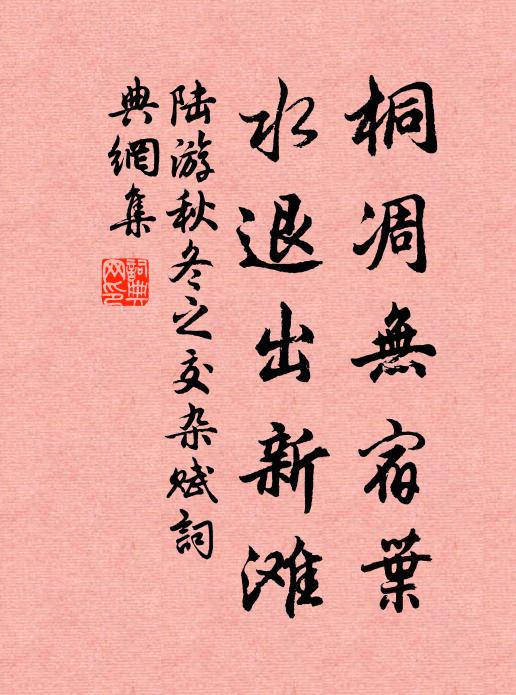 桐凋無宿葉
水退出新滩
陆游秋冬之交杂赋詞
典網集
詞典
网印